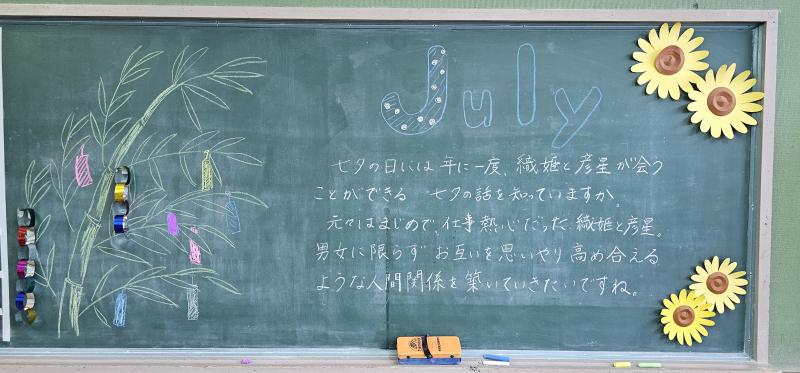 July
七夕の日には年に一度、織姫と彦星が会う
ことができる 七夕の話を知っていますか。
元々はまじめで、仕事熱心だった織姫と彦星。
男女に限らず お互いを思いやり高め合える
ような人間関係を築いていきたいですね。